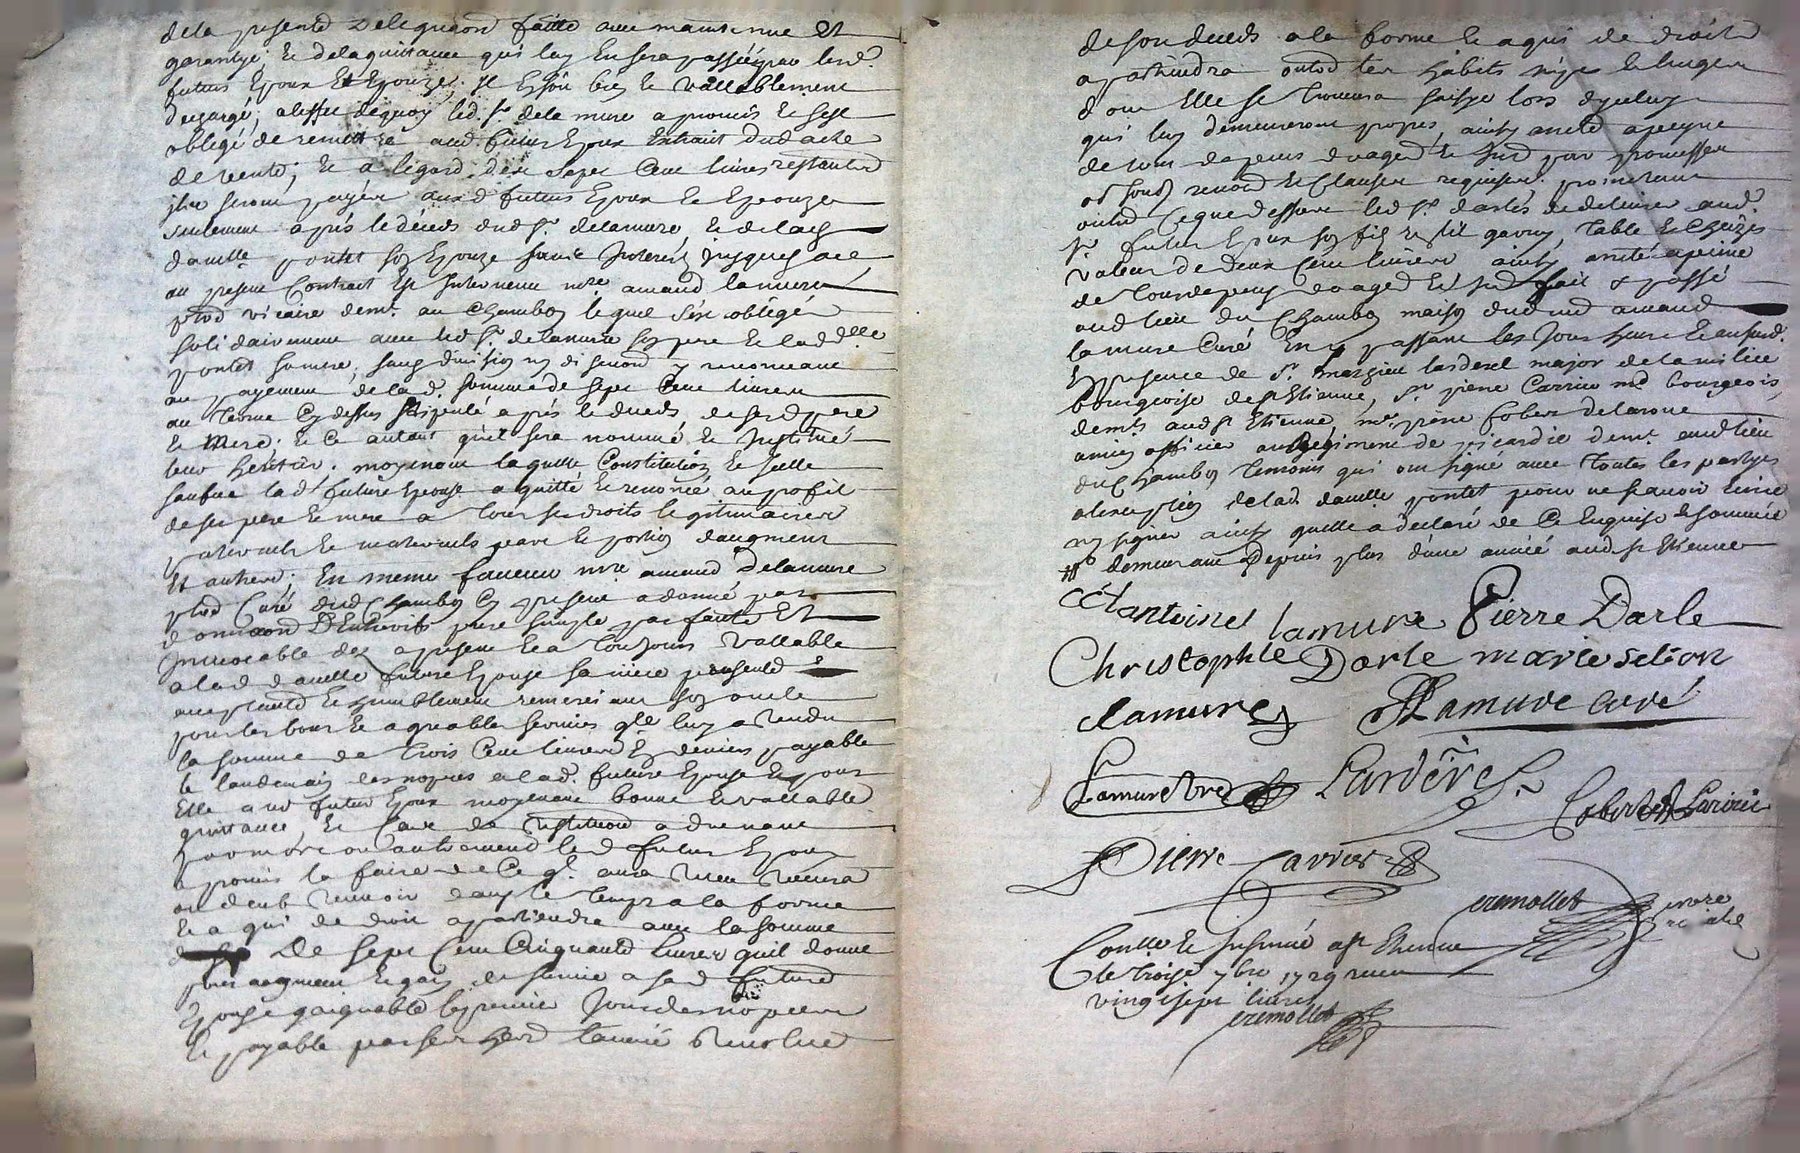 de la presente delegation faitte avec maintenue et
garantye, et de la quittance qui luy en sera passée par lesd.
futurs Epoux et Epouze, Il Esoit bien et vallablement
dechargé, a leffet dequoy led. sr. de la mure a promis et sest
obligé de remettre aud. futur Epoux Extrait dud acte
de vente; Et a légard des sept Cent livres restantes
seront payées ausd futurs Epoux et Epouze
seulement aprés le décéds dud sr. delamure, et de lad
damlle pontet son Epouze sans Interest jusques a ce
au present Contrat Est Intervenu mre amand lamure
ptre vicaire demt. au Chambon lequel sest obligé
solidairement avec led sr. delamure son pere et lad dlle
pontet sa mere, sans division ny discution y renonceant
au payement de lad. somme de sept Cent livres
au terme Cy dessus stipulé aprés le deceds de sesd pere
et mere, et Ce autant quil sera nommé et Institué
leur heritier. moyenant laquelle Constitution et Icelle
saufve lad future Epouse a quitté et renoncé au profit
de ses pere et mere a tous ses droits legitimaires
paternels et maternels part et portion daugment
Et autres; En meme faveur mre amand Delamure
ptre Curé dud Chambon Cy present a donné par
donnaon Dentrevifs pure simple parfaitte Et
Irrevocable des a present et a toujours vallable
a lad damlle future Epouse sa niéce presente Et
acceptante et humblement remerciant son oncle
pour les bons et agreables services qlle luy a rendu
la somme de trois Cent livres En deniers payable
le landemain des nopces a lad. future Epouse et pour
Elle aud futur Epoux moyenant bonne et vallable
quittance, Et Cas de restitution advenant
par mort ou autrement led futur Epoux
a promis la faire de Ce ql. aura receu
ou deub recevoir dans le temps a la forme
et a qui de droit apartiendra avec la somme
De sept Cent Cinquante livres quil donne
pour augment et gain de survie a sad future
Epouse gaignable le premier Jour des nopces
Et payable par ses hers lannée revolue
de son deceds a la forme et a qui de droit
apartiendra outre les habits nipes et linges
dont Elle se trouvera saisye lors diceluy
qui luy demeureront propres, ainsy arreté a peyne
de tous depens domages et Intd par promesses
et Clauses requises. promettant
outre Ce que dessus led sr. darles de delivrer aud.
sr. futur Epoux son fils un lit garny, Table et Cheizes
valeur de Deux Cent livres ainsy arreté a peine
de tous depens domages et Intd fait & passé
aud lieu du Chambon maison dud mre amand
lamure Curé En y passant les Jour heure
En presence de sr. marzieu larderet major de la milice
bourgeoise de st Etienne, sr. pierre Carrier md bourgeois
demt. aud st Etienne, mr. pierre Cobert delarone
ancien officier au Regiment de picardie demt. aud lieu
du Chambon temoins qui ont signé avec Toutes les partyes
a lexception de lad. damlle pontet pour ne scavoir Ecrire
ny signer ainsy quelle a declaré de Ce Enquise & sommée
demeurant Depuis plus dune année aud st Etienne
antoine lamure Pierre Darle
Christophle Darle marie
lamure Lamure curé
Lamure Larderet
Cobert
Pierre Carrier
eremollet
notre
Conlle Et Insinué a st Etienne
le troise 7bre 1729 receu
vingt sept livres
eremollet